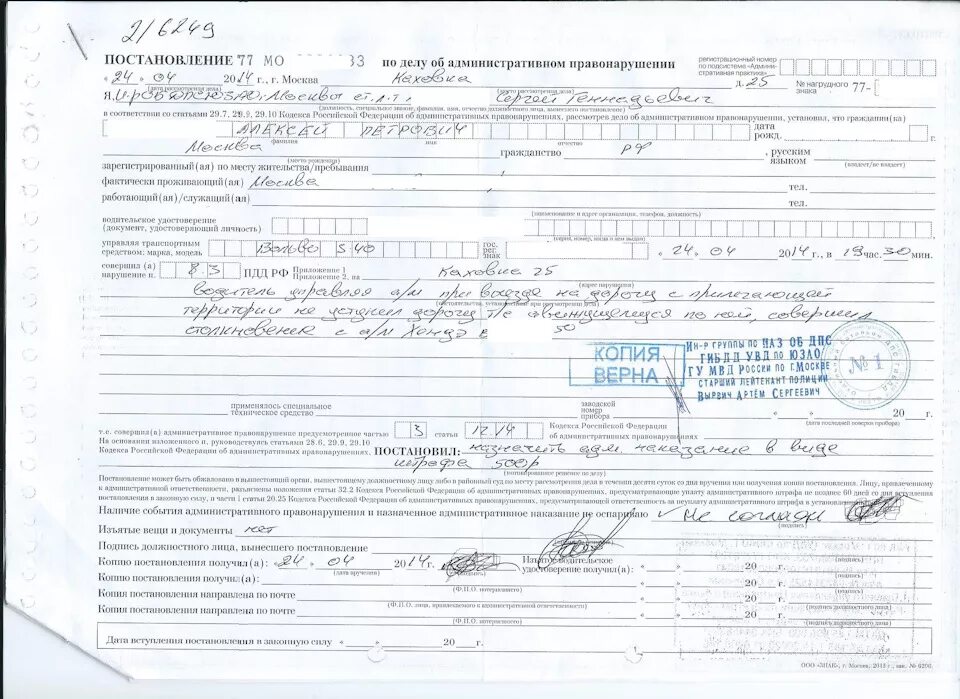 2/6249
ПОСТАНОВЛЕНИЕ 77 МО 33 по делу об административном правонарушении
регистрационный номер по подсистеме «Административная практика»
«24» 04 2014 г., г. Москва Каховка д. 25 № нагрудного знака 77-
(дата рассмотрения дела) (место рассмотрения дела)
Я, Москвы ст. л-т. Сергей Геннадьевич
(должность, специальное звание, фамилия, имя, отчество должностного лица, вынесшего постановление)
в соответствии со статьями 29.7, 29.9, 29.10 Кодекса Российской Федерации об административных правонарушениях, рассмотрев дело об административном правонарушении, установил, что гражданин(ка)
АЛЕКСЕЙ ПЕТРОВИЧ дата рожд. г.
фамилия имя отчество
Москва гражданство РФ , русским языком
(место рождения) (владеет/не владеет)
зарегистрированный(ая) по месту жительства/пребывания
фактически проживающий(ая) Москва тел.
работающий(ая)/служащий(ая) тел.
(наименование и адрес организации, телефон, должность)
водительское удостоверение (документ, удостоверяющий личность)
(серия, номер, когда и кем выдан)
управляя транспортным средством: марка, модель Вольво S40 гос. рег. знак «24» 04 2014 г., в 19 час. 30 мин.
совершил(а) нарушение п. 8.3 ПДД РФ Приложение 1 Приложение 2, на Каховка 25
(адрес нарушения)
водитель управляя а/м при выезде на дорогу с прилегающей
территории не уступил дорогу т/с движущемуся по ней, совершил
столкновение с а/м Хонда 50
КОПИЯ ВЕРНА
Ин-р группы по ИАЗ ОБ ДПС
ГИБДД УВД по ЮЗАО
ГУ МВД России по г. Москве
старший лейтенант полиции
Вырвич Артём Сергеевич
№ 1
применялось специальное техническое средство заводской номер прибора « » 20 г.
(дата последней поверки прибора)
т.е. совершил(а) административное правонарушение предусмотренное частью 3 статьи 12.14 Кодекса Российской Федерации об административных правонарушениях
На основании изложенного и, руководствуясь статьями 28.6, 29.9, 29.10
Кодекса Российской Федерации об административных правонарушениях, ПОСТАНОВИЛ: назначить адм. наказание в виде
штрафа 500р
(мотивированное решение по делу)
Постановление может быть обжаловано в вышестоящий орган, вышестоящему должностному лицу либо в районный суд по месту рассмотрения дела в течении десяти суток со дня вручения или получения копии постановления. Лицу, привлеченному
Наличие события административного правонарушения и назначенное административное наказание не оспариваю Не согласен
(подпись)
Изъятые вещи и документы нет
Подпись должностного лица, вынесшего постановление
Копию постановления получил(а): «24» 04 2014 г. Изъятое водительское удостоверение получил(а): « » 20 г.
(дата вручения) (подпись) (подпись)
Копию постановления получил(а): « » 20 г.
(Ф.И.О. потерпевшего) (подпись)
Копия постановления направлена по почте « » 20 г.
(Ф.И.О. лица, привлекаемого к административной ответственности) (подпись должностного лица)
Копия постановления направлена по почте « » 20 г.
(Ф.И.О. потерпевшего) (подпись должностного лица)
Дата вступления постановления в законную силу « » 20 г.
ООО «ЗНАК», г. Москва, 2013 г., зак. № 6206.